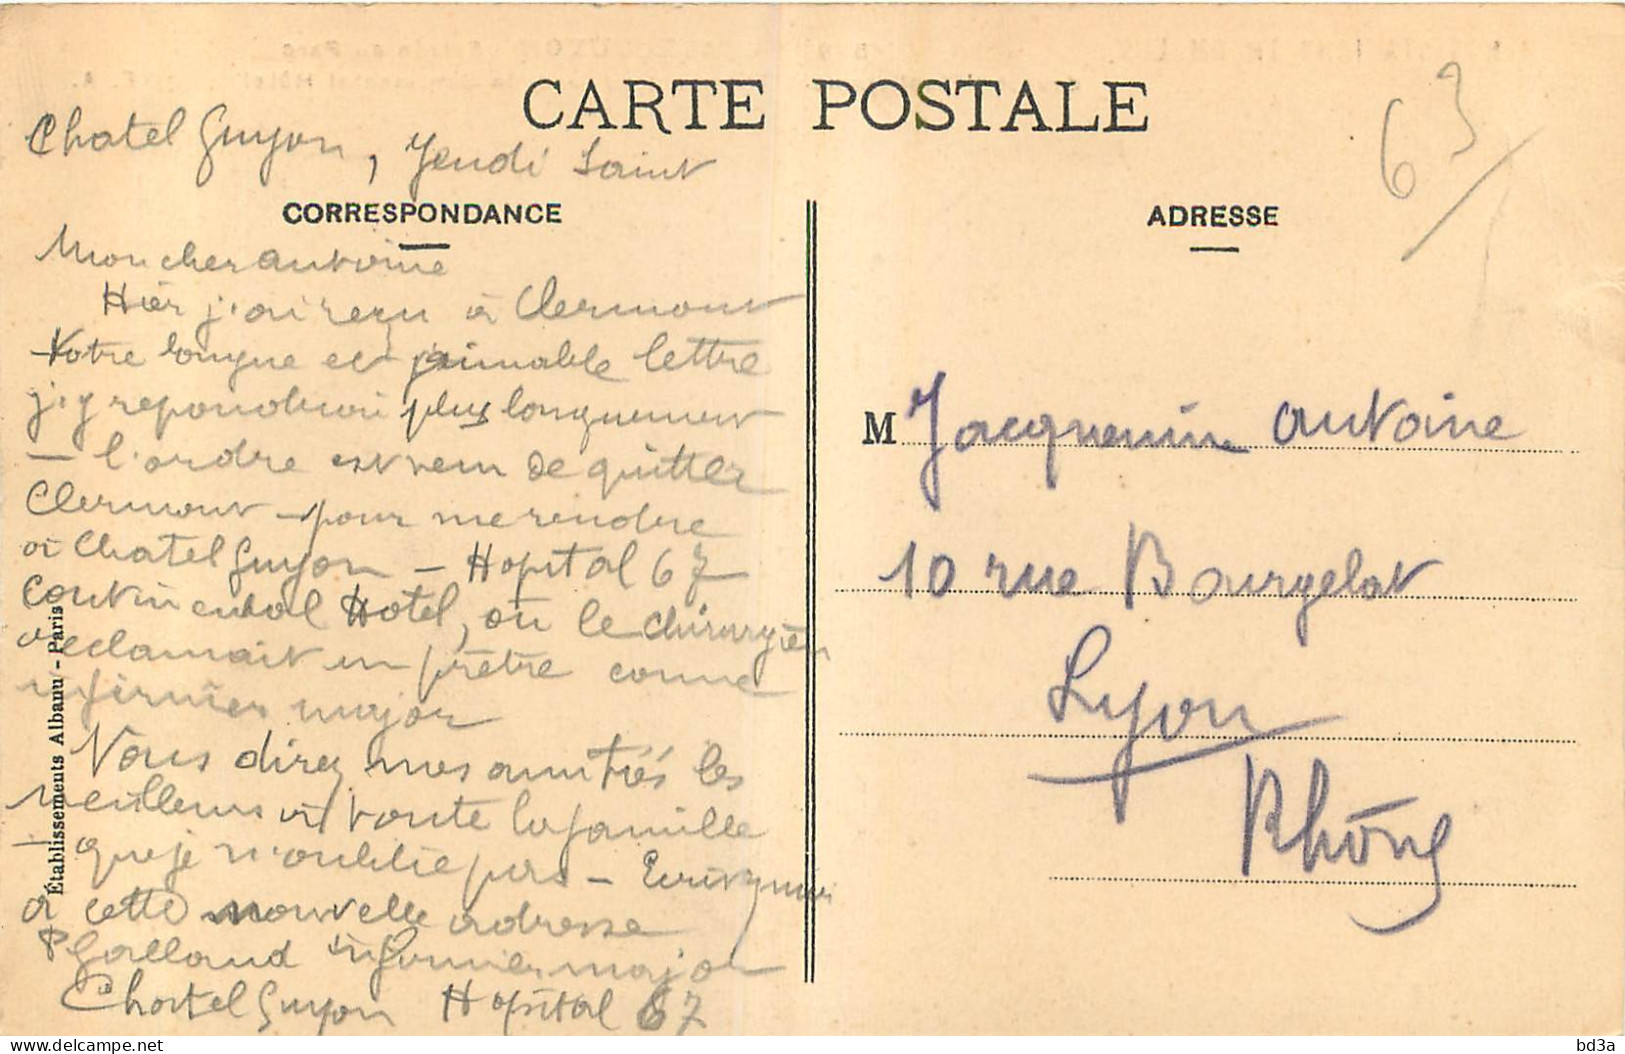 CARTE POSTALE
63
Chatel Guyon, Jeudi Saint
CORRESPONDANCE
Mon cher Antoine
Hier j'ai reçu à Clermont
Votre longue et aimable lettre
j'y repondrai plus longuement
— l'ordre est venu de quitter
Clermont — pour me rendre
à Chatel Guyon — Hopital 67
Continental Hotel, où le chirurgien
reclamait un prêtre comme
infirmier major
Vous direz mes amitiés les
meilleures à toute la famille
— que je n'oublie pas — Ecrivez moi
à cette nouvelle adresse
P Galland infirmier major
Chatel Guyon Hopital 67
Établissements Albanu - Paris
ADRESSE
M Jacquemin Antoine
10 rue Bourgelat
Lyon
Rhône
delcampe.net
bd3a